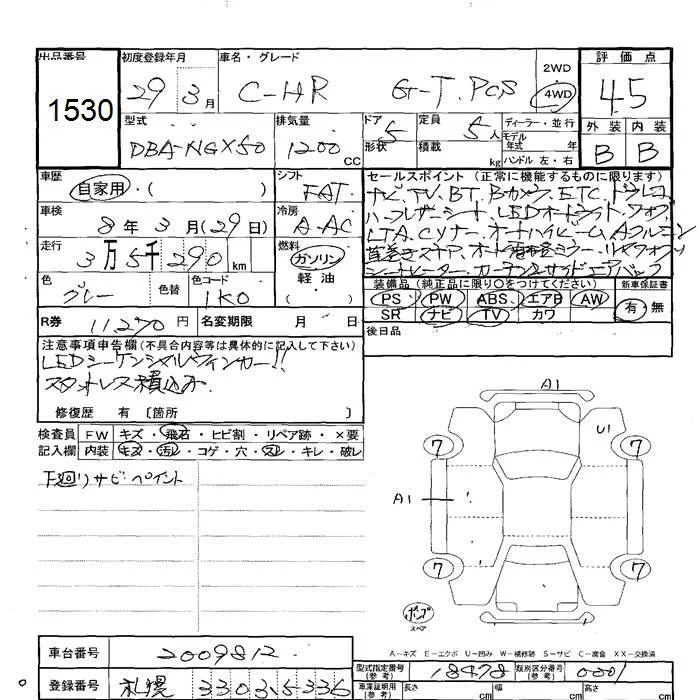 出品番号 初度登録年月 車名・グレード 2WD 評価点
1530 29 3月 C-HR G-T.PCS 4WD 4.5
型式 排気量 ドア形状 定員 ディーラー・並行 外装 内装
DBA-NGX50 1200 CC 5 5人 積載 kg モデル年式 年 ハンドル 左・右 B B
車歴 シフト セールスポイント(正常に機能するものに限ります)
自家用・( ) FAT ナビ.TV.BT.Bカメラ.ETC.ドラレコ
車検 冷房 ハーフレザーシート.LEDオートライト.フォグ
8年3月(29日) A.AC LTA.Cソナー.オートハイビーム.Aクルミン
走行 燃料
3万5千290km ガソリン シートヒーター.カーテン&サイドエアバック
軽油
色 色替 色コード 装備品(純正品に限り○をつけてください) 新車保証書
グレー 1K0 PS PW ABS エアB AW 有・無
SR ナビ TV カワ
R券 11270円 名変期限 月 日 後日品
注意事項申告欄(不具合内容等は具体的に記入して下さい)
LEDシーケンシャルウィンカー!!
スタットレス積込み
修復歴 有 〔箇所 〕
検査員 FW キズ・飛石・ヒビ割・リペア跡・×要
記入欄 内装 キズ・汚レ・コゲ・穴・スレ・キレ・破レ
下廻りサビペイント
A1
U1
7 7
A1
7 7
ポンプ
スペア
A-キズ E-エクボ U-凹み W-補修跡 S-サビ C-腐食 XX-交換済
車台番号 2009812 型式指定番号(参考) 18478 類別区分番号(参考) 0001
登録番号 札幌 330 さ 5336 車庫証明用(参考) 長さ cm 幅 cm 高さ cm